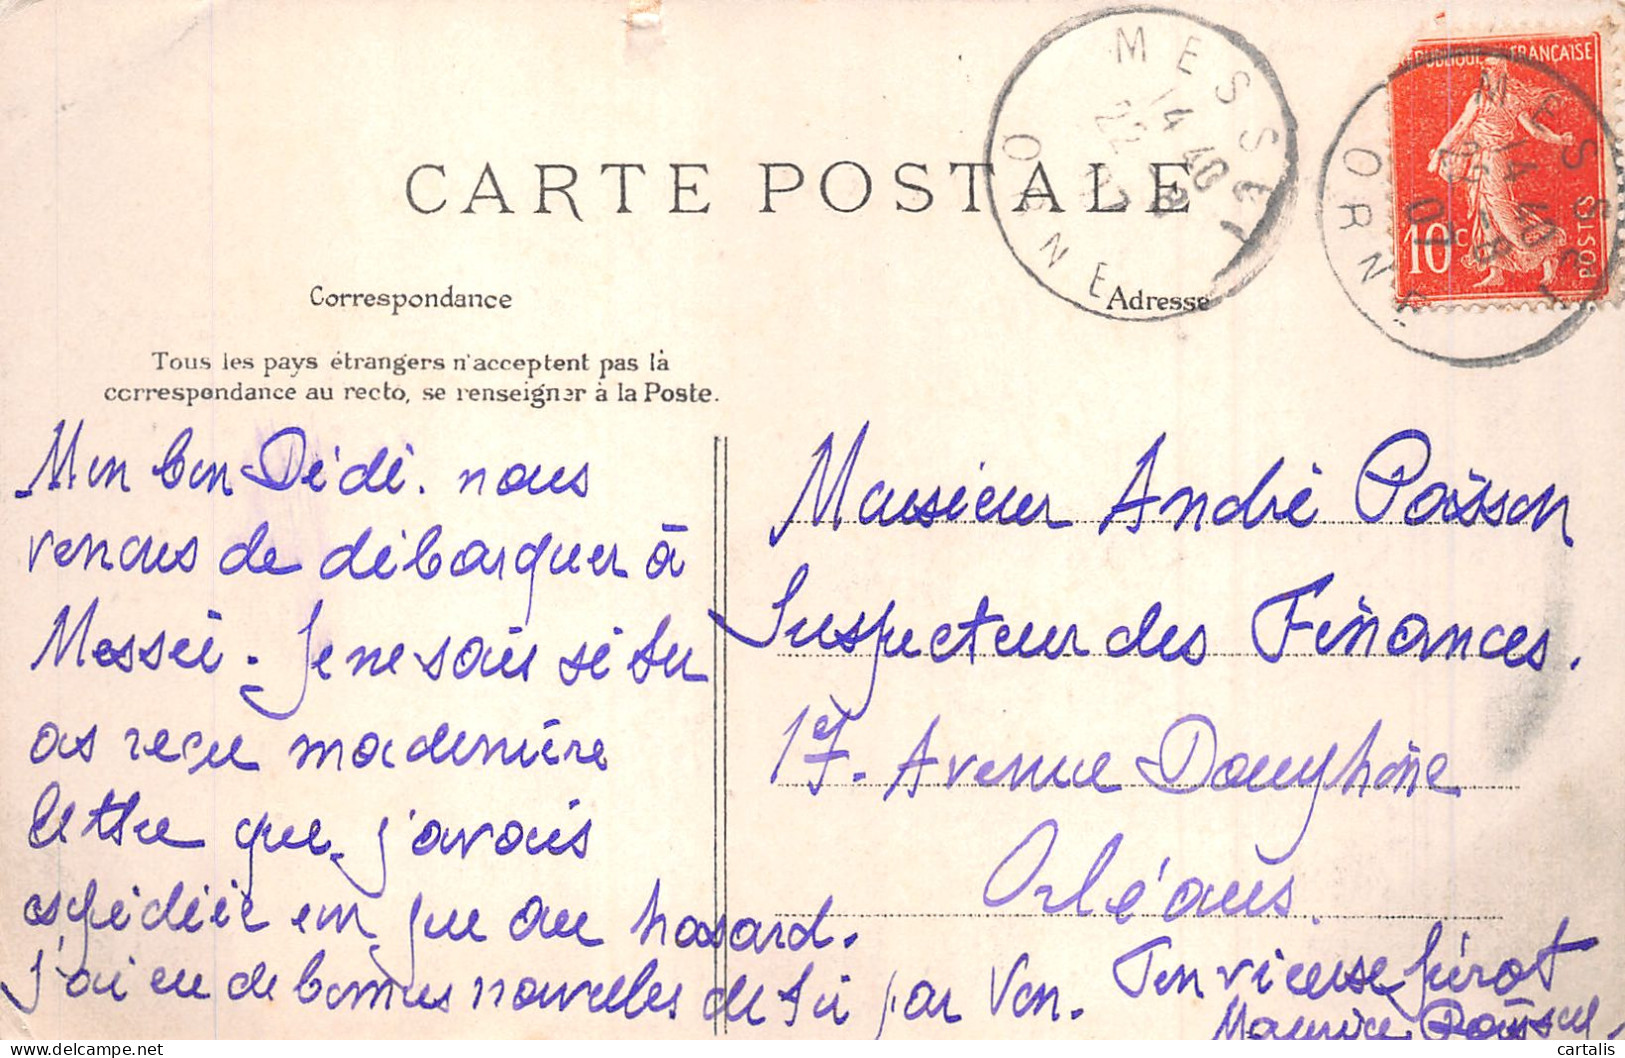 CARTE POSTALE
MESSEI
14 40
22 -8
07
ORNE
RÉPUBLIQUE FRANÇAISE
10c
POSTES
MESSEI
14 40
22 -8
07
ORNE
Correspondance
Adresse
Tous les pays étrangers n'acceptent pas la
correspondance au recto, se renseigner à la Poste.
Mon bon Dédé. nous
venons de débarquer à
Messei. Je ne sais si tu
as reçu ma dernière
lettre que j'avais
expédiée un peu au hasard.
J'ai eu de bonnes nouvelles de toi par Von.
Monsieur André Poisson
Inspecteur des Finances.
17. Avenue Dauphine
Orléans.
Ton vieux frérot
Maurice Poisson
cartalis